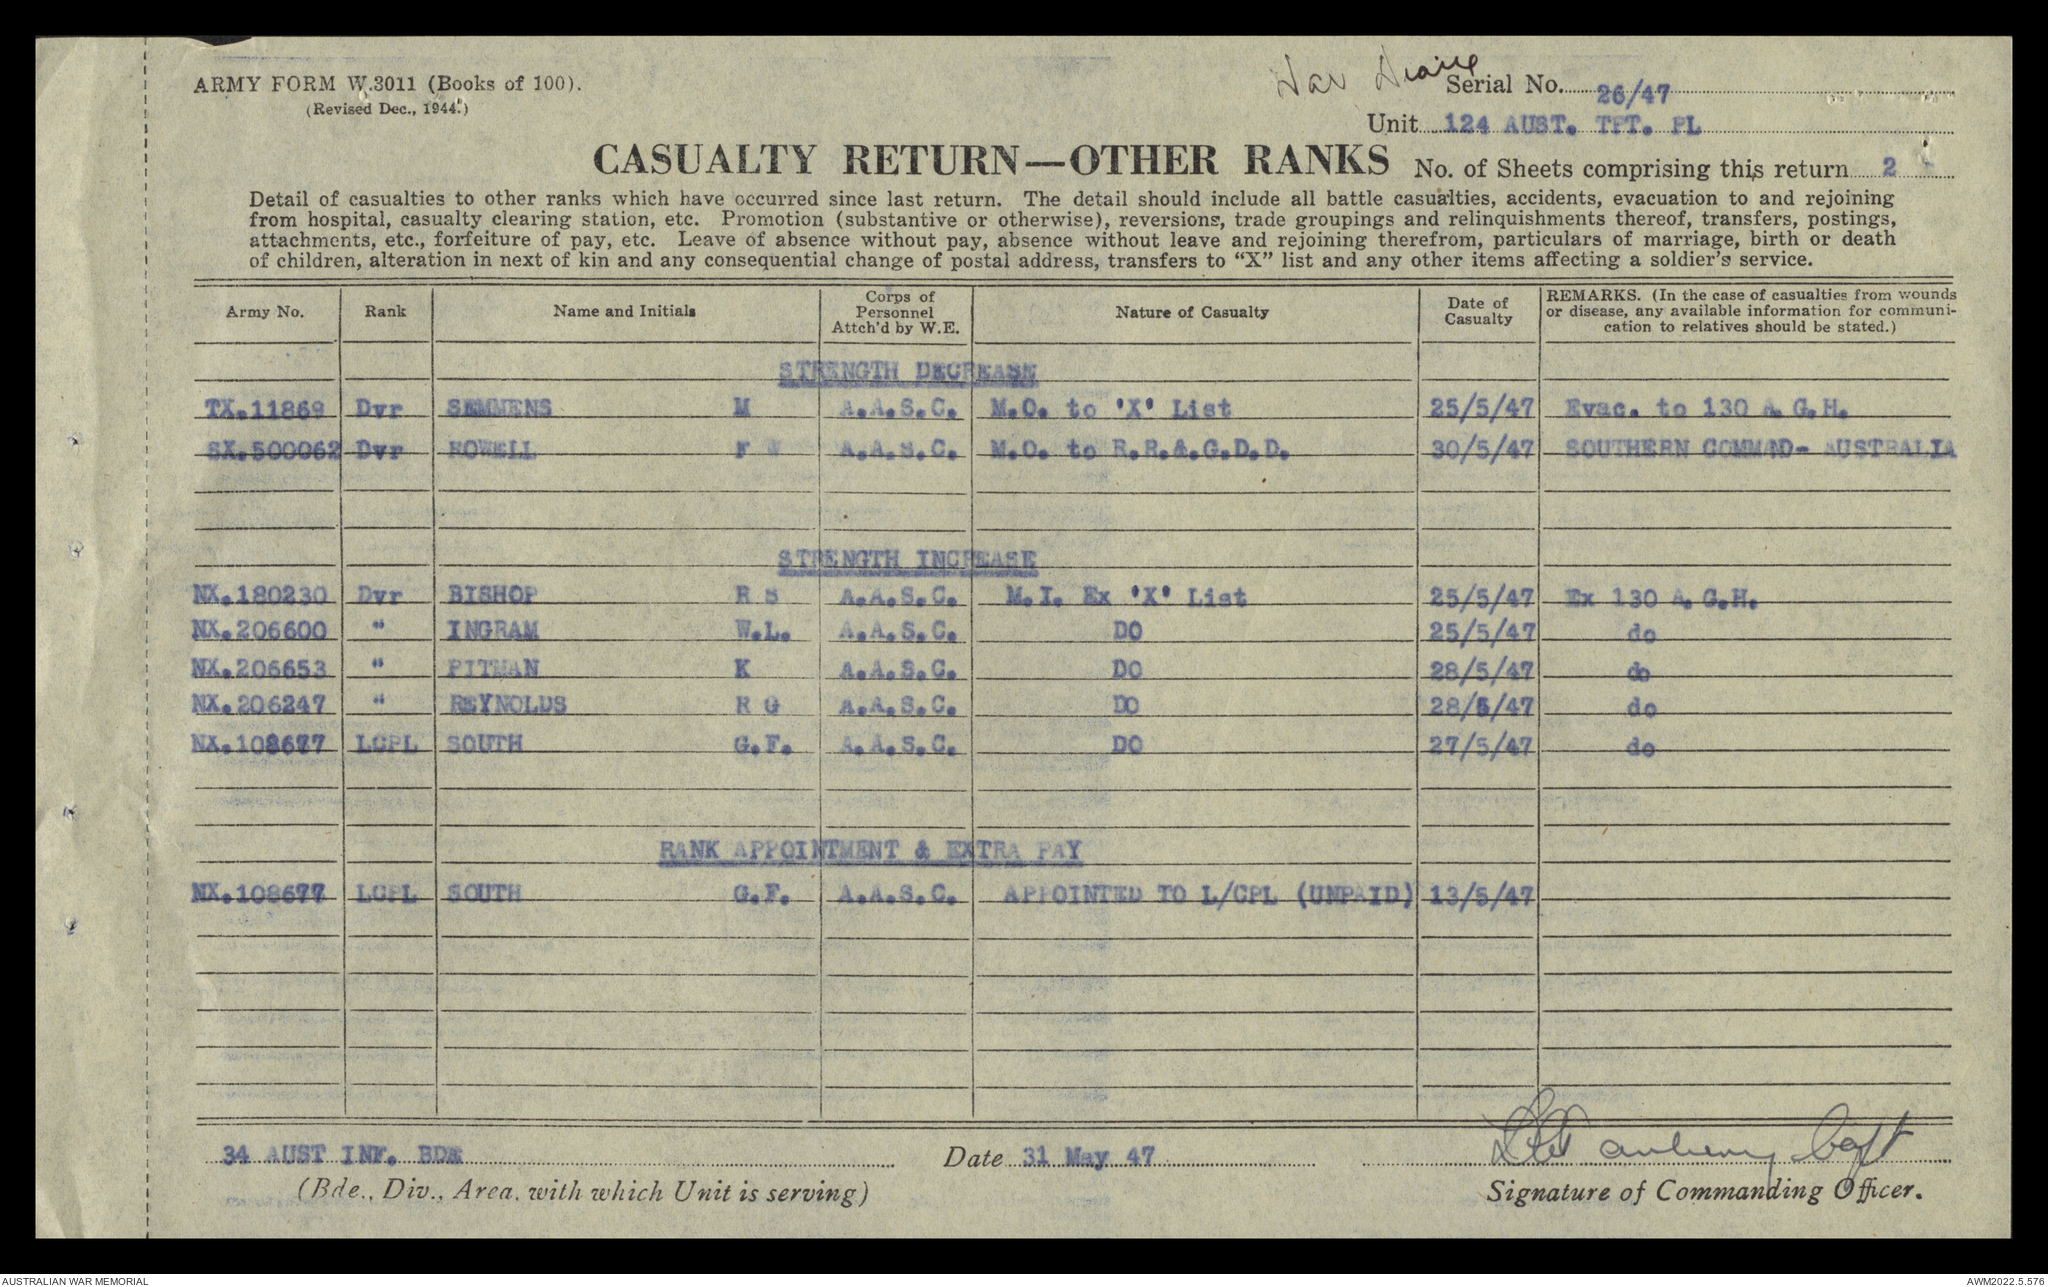 ARMY FORM W.3011 (Books of 100).
(Revised Dec., 1944.)
War Diary
Serial No. 26/47
Unit 124 AUST. TPT. PL
CASUALTY RETURN—OTHER RANKS
No. of Sheets comprising this return 2
Detail of casualties to other ranks which have occurred since last return. The detail should include all battle casualties, accidents, evacuation to and rejoining
from hospital, casualty clearing station, etc. Promotion (substantive or otherwise), reversions, trade groupings and relinquishments thereof, transfers, postings,
attachments, etc., forfeiture of pay, etc. Leave of absence without pay, absence without leave and rejoining therefrom, particulars of marriage, birth or death
of children, alteration in next of kin and any consequential change of postal address, transfers to “X” list and any other items affecting a soldier’s service.
Army No. Rank Name and Initials Corps of Personnel Attch’d by W.E. Nature of Casualty Date of Casualty REMARKS. (In the case of casualties from wounds or disease, any available information for communi-cation to relatives should be stated.)
STRENGTH DECREASE
TX.11869 Dvr SEMMENS M A.A.S.C. M.O. to 'X' List 25/5/47 Evac. to 130 A.G.H.
SX.500062 Dvr HOWELL F W A.A.S.C. M.O. to R.R.&.G.D.D. 30/5/47 SOUTHERN COMMAND- AUSTRALIA
STRENGTH INCREASE
NX.180230 Dvr BISHOP R S A.A.S.C. M.I. Ex 'X' List 25/5/47 Ex 130 A.G.H.
NX.206600 " INGRAM W.L. A.A.S.C. DO 25/5/47 do
NX.206653 " PITMAN K A.A.S.C. DO 28/5/47 do
NX.206247 " REYNOLDS R G A.A.S.C. DO 28/5/47 do
NX.108677 LCPL SOUTH G.F. A.A.S.C. DO 27/5/47 do
RANK APPOINTMENT & EXTRA PAY
NX.108677 LCPL SOUTH G.F. A.A.S.C. APPOINTED TO L/CPL (UNPAID) 13/5/47
34 AUST INF. BDE Date 31 May 47 Capt
(Bde., Div., Area, with which Unit is serving) Signature of Commanding Officer.
AUSTRALIAN WAR MEMORIAL AWM2022.5.576